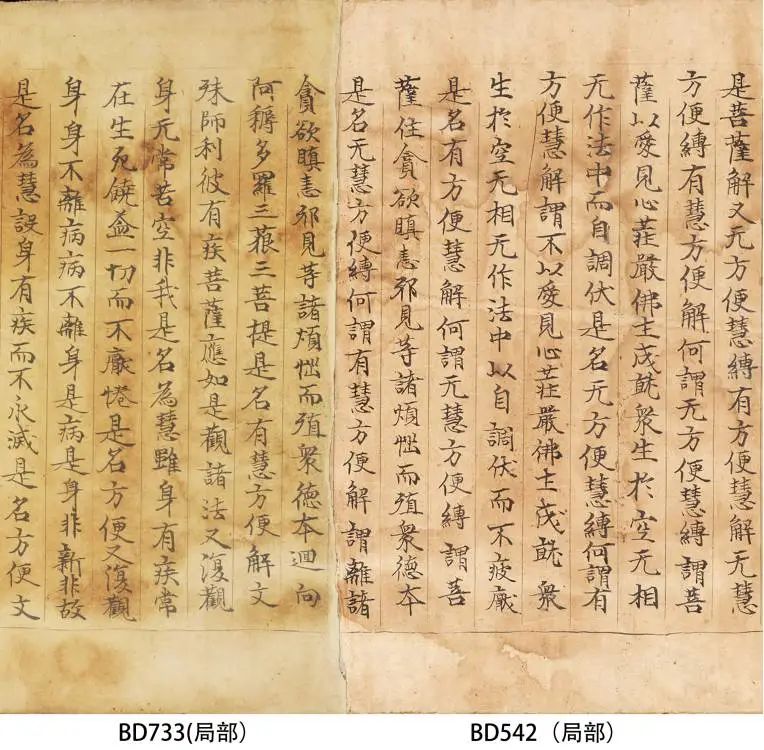 是菩薩解又无方便慧縛有方便慧解无慧
方便縛有慧方便解何謂无方便慧縛謂菩
薩以愛見心莊嚴佛土成就衆生於空无相
无作法中而自調伏是名无方便慧縛何謂有
方便慧解謂不以愛見心莊嚴佛土成就衆
生於空无相无作法中以自調伏而不疲厭
是名有方便慧解何謂无慧方便縛謂菩
薩住貪欲瞋恚邪見等諸煩惱而殖衆德本
是名无慧方便縛何謂有慧方便解謂離諸
貪欲瞋恚邪見等諸煩惱而殖衆德本迴向
阿耨多羅三藐三菩提是名有慧方便解文
殊師利彼有疾菩薩應如是觀諸法又復觀
身无常苦空非我是名為慧雖身有疾常
在生死饒益一切而不厭惓是名方便又復觀
身身不離病病不離身是病是身非新非故
是名為慧設身有疾而不永滅是名方便文
BD733(局部）
BD542（局部）